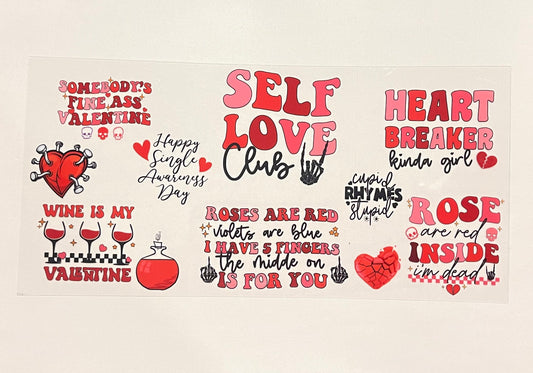 SOMEBODY'S
FINE ASS
VALENTINE
Happy
Single
Awareness
Day
SELF
LOVE
Club
HEART
BREAKER
kinda girl
cupid
RHYMES
stupid
WINE IS MY
VALENTINE
ROSES ARE RED
violets are blue
I HAVE 5 FINGERS
the midde on
IS FOR YOU
ROSE
are red
INSIDE
i'm dead